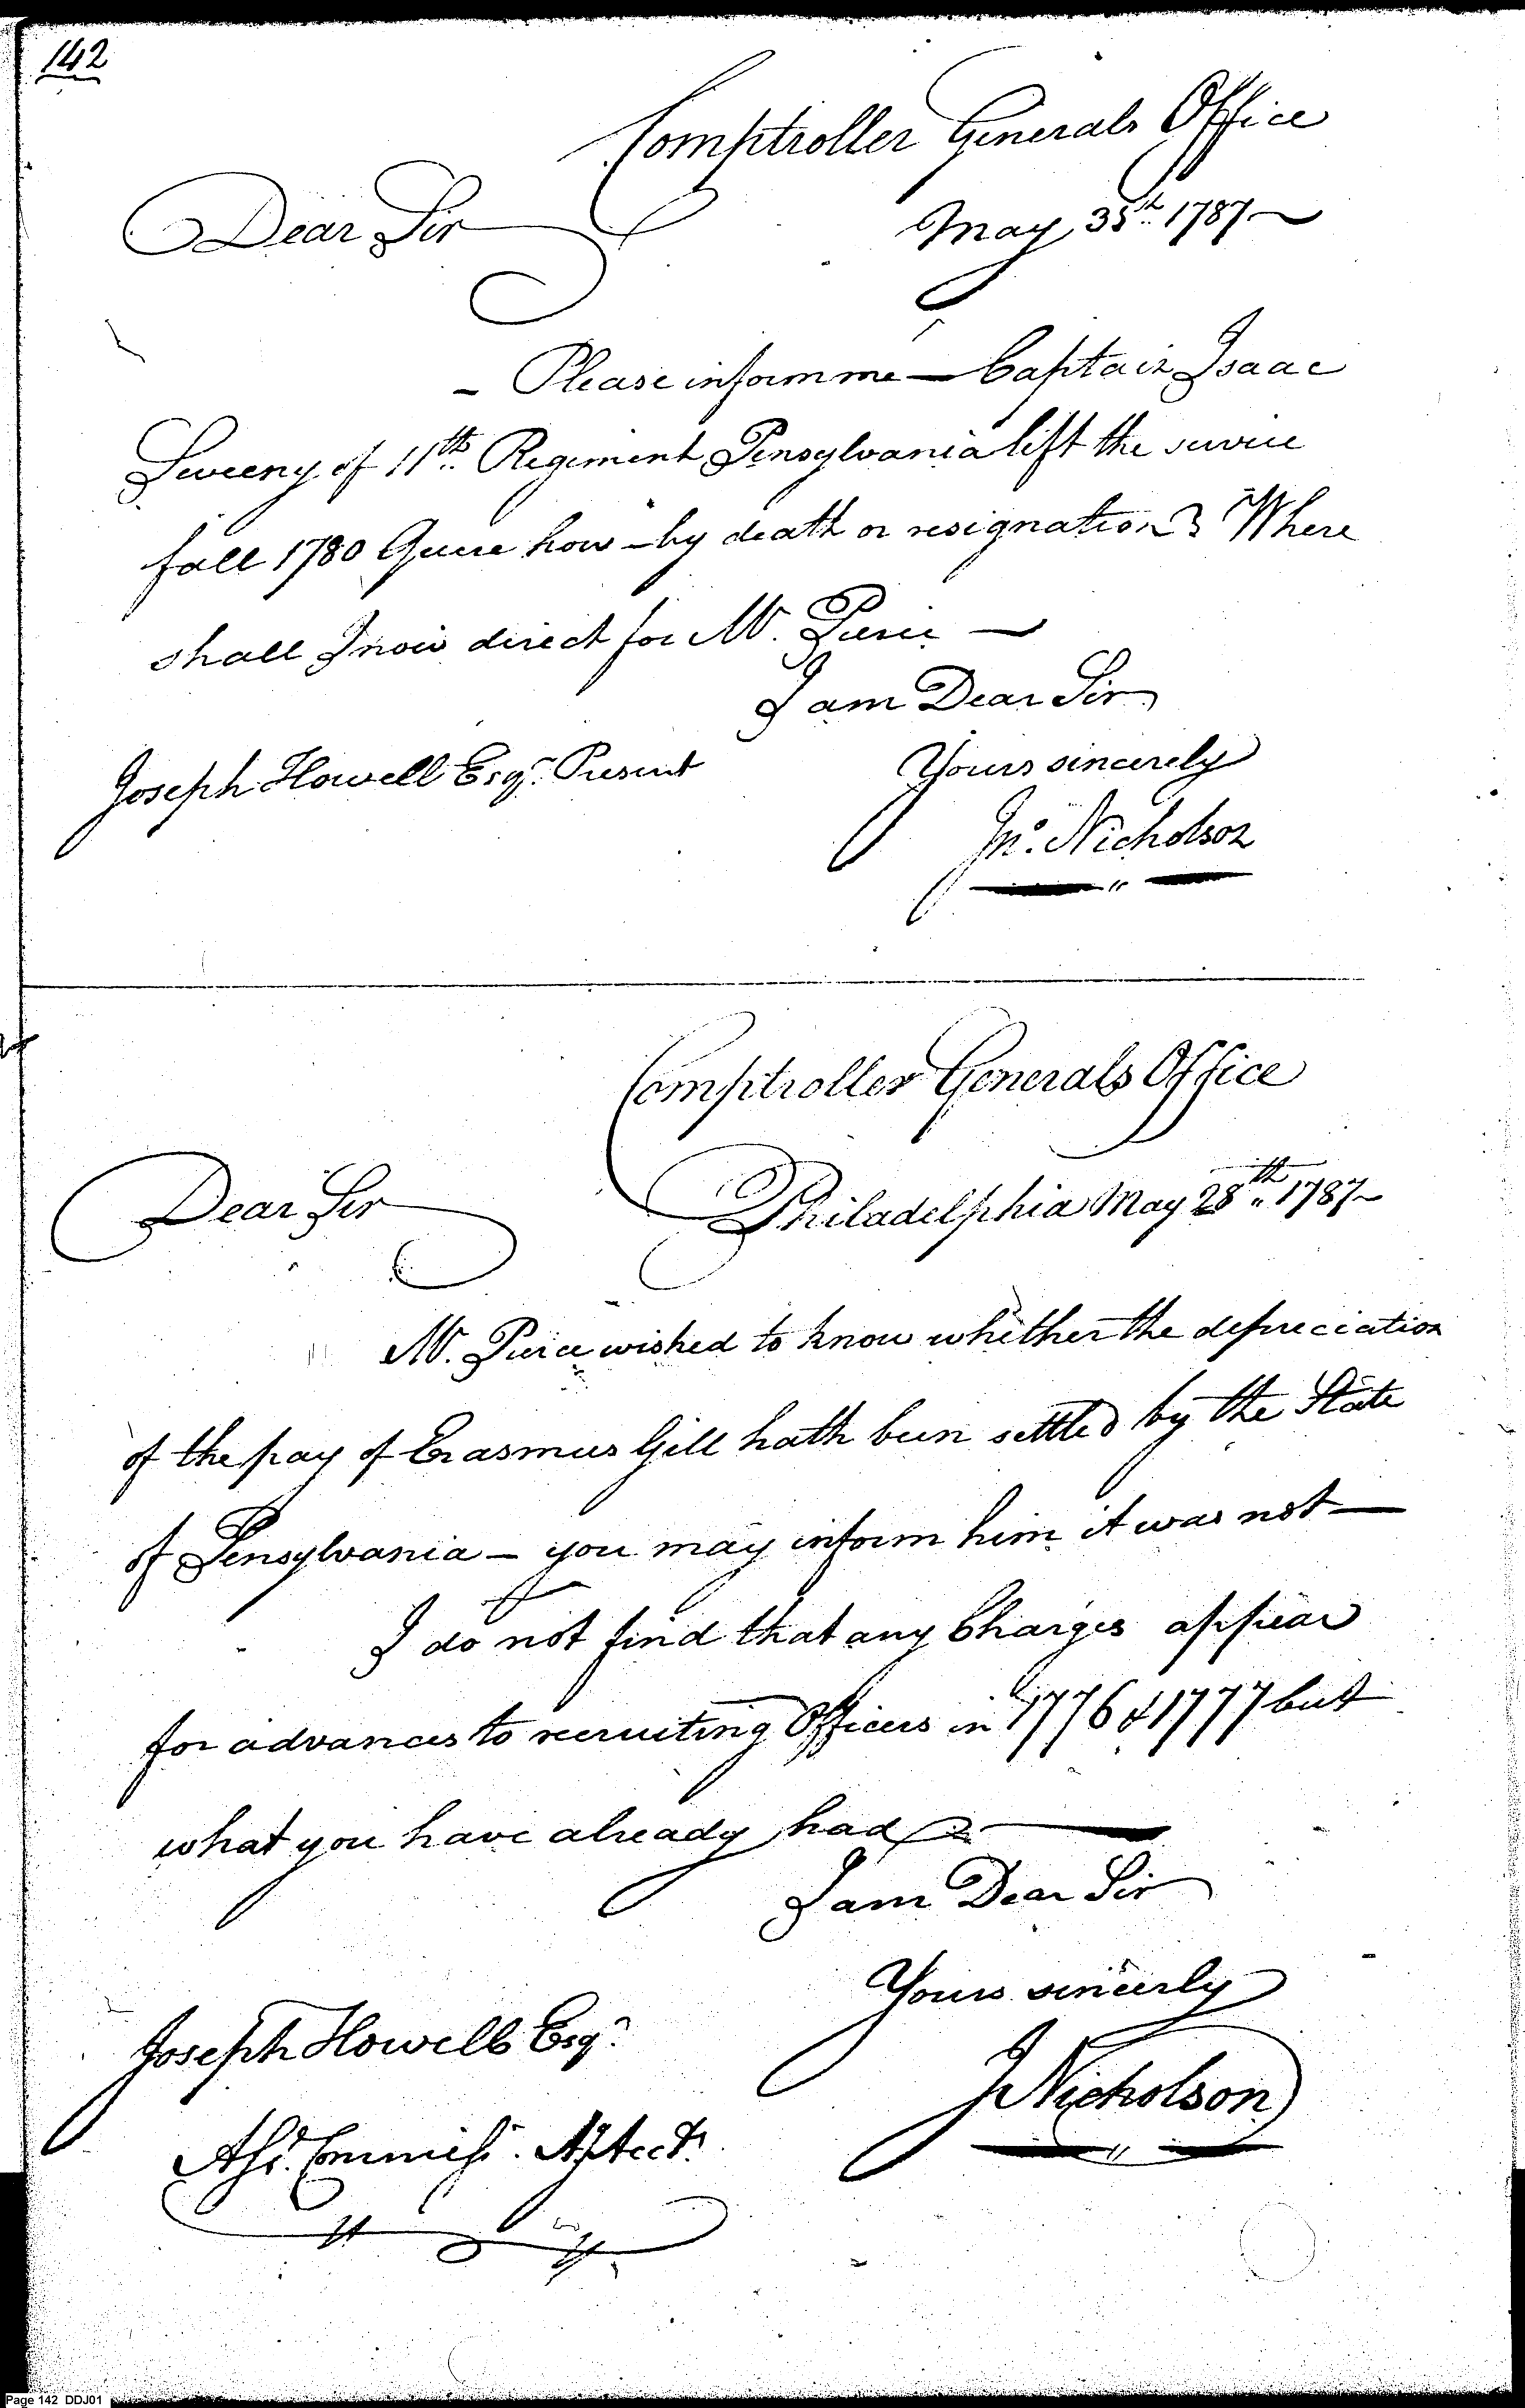 142
Comptroller Generals Office
Dear Sir
May 35th 1787
- Please inform me — Captain Isaac
Sweeny of 11th Regiment Pensylvania left the service
fall 1780 Quere how - by death or resignation? Where
shall I now direct for Mr. Pierce —
I am Dear Sir
Joseph Howell Esqr. Present
Yours sincerely
Jno. Nicholson
Comptroller Generals Office
Dear Sir
Philadelphia May 28th 1787
Mr. Pierce wished to know whether the depreciation
of the pay of Erasmus Gill hath been settled by the State
of Pensylvania - you may inform him it was not —
I do not find that any Charges appear
for advances to recruiting Officers in 1776 & 1777 but
what you have already had
I am Dear Sir
Yours sincerly
Joseph Howell Esqr.
J Nicholson
Asst. Commissr. Ay Acct.
Page 142 DDJ01